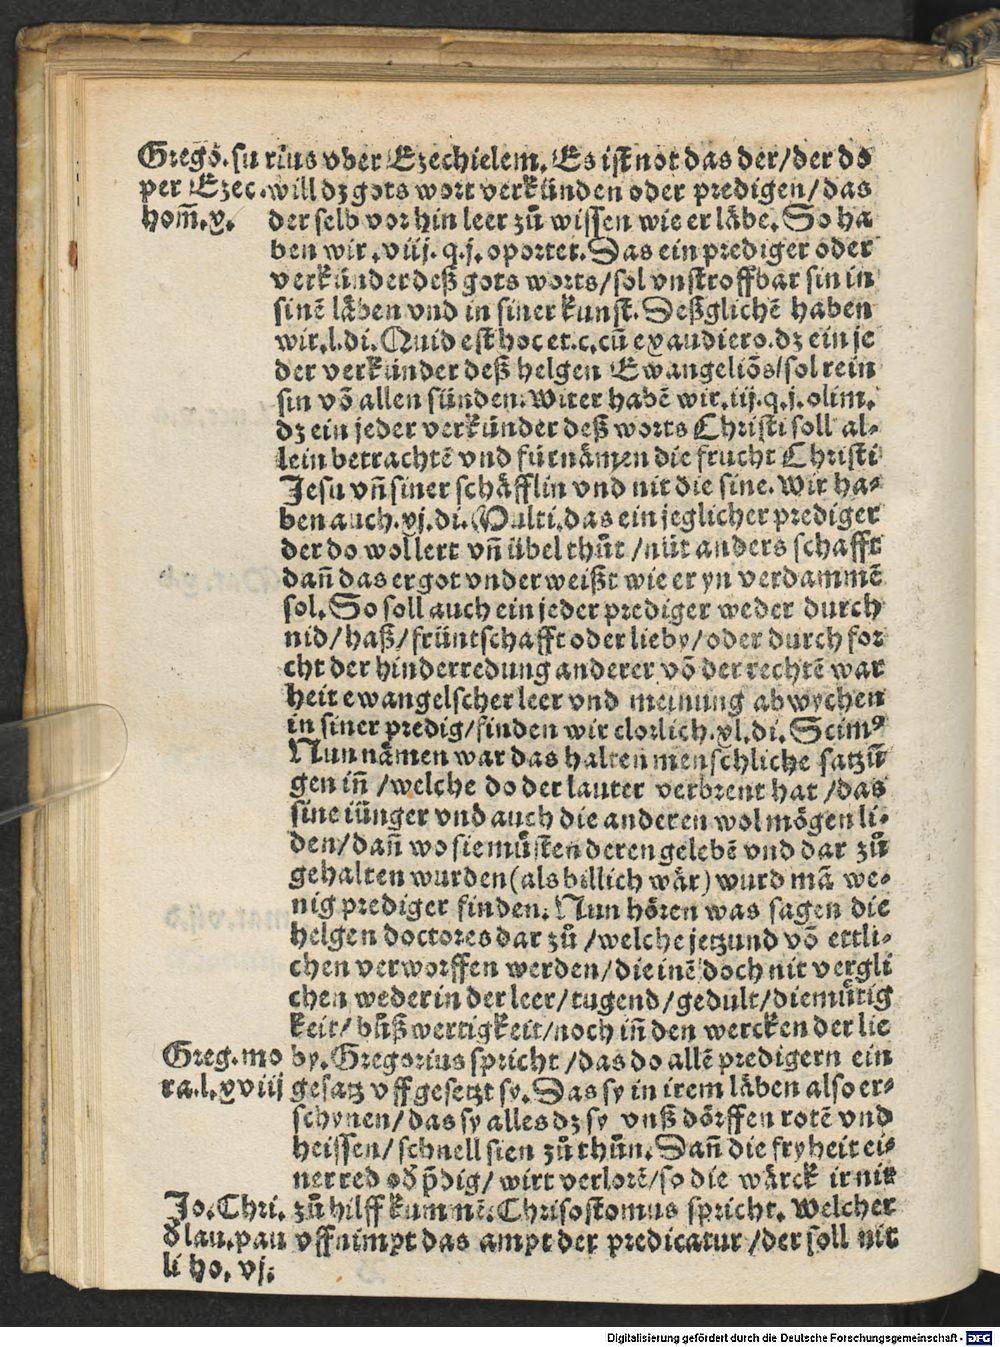 Gregō. su
per Ezec.
hom̄. x.
rius vber Ezechielem. Es ist not das der/der do
will dz gots wort verkünden oder predigen/das
der selb vor hin leer zů wissen wie er läbe. So ha
ben wir .viij. q. j. oportet. Das ein prediger oder
verkünder deß gots worts/sol vnstroffbar sin in
sinē läben vnd in siner kunst. Deßglichē haben
wir .l. di. Quid est hoc et. c. cū exaudiero. dz ein je
der verkünder deß helgen Ewangeliōs/sol rein
sin vō allen sünden. Witer habē wir .iij. q. j. olim.
dz ein jeder verkünder deß worts Christi soll al-
lein betrachtē vnd fürnämen die frucht Christi
Jesu vn̄ siner schäfflin vnd nit die sine. Wir ha-
ben auch .xj. di. Multi. das ein jeglicher prediger
der do wollert vn̄ übel thůt/nüt anders schafft
dan̄ das er got vnderweißt wie er yn verdammē
sol. So soll auch ein jeder prediger weder durch
nid/haß/früntschafft oder lieby/oder durch for
cht der hinderredung anderer vō der rechtē war
heit ewangelscher leer vnd meinung abwychen
in siner predig/finden wir clorlich .xl. di. Scimꝰ
Nun nämen war das halten menschliche satzū
gen in̄ /welche do der lauter verbrent hat/das
sine iünger vnd auch die anderen wol mögen li-
den/dan̄ wo sie müsten deren gelebē vnd dar zů
gehalten wurden (als billich wär) wurd mā we-
nig prediger finden. Nun hören was sagen die
helgen doctores dar zů/welche jetzund vō ettli-
chen verworffen werden/die inē doch nit vergli
chen weder in der leer/tugend/gedult/diemütig
keit/bůßwertigkeit/noch in̄ den wercken der lie
Greg. mo
ra. l. xviij
by. Gregorius spricht/das do allē predigern ein
gesatz vff gesetzt sy. Das sy in irem läben also er-
schynen/das sy alles dz sy vnß dörffen rotē vnd
heissen/schnell sien zů thůn. Dan̄ die fryheit ei-
ner red od̄ p̄dig/wirt verlorē/so die wärck ir nit
Jo. Chri.
d̄ lau. pau
li ho. vj.
zů hilff kummē. Chrisostomus spricht. Welcher
vffnimpt das ampt der predicatur/der soll nit
Digitalisierung gefördert durch die Deutsche Forschungsgemeinschaft - DFG